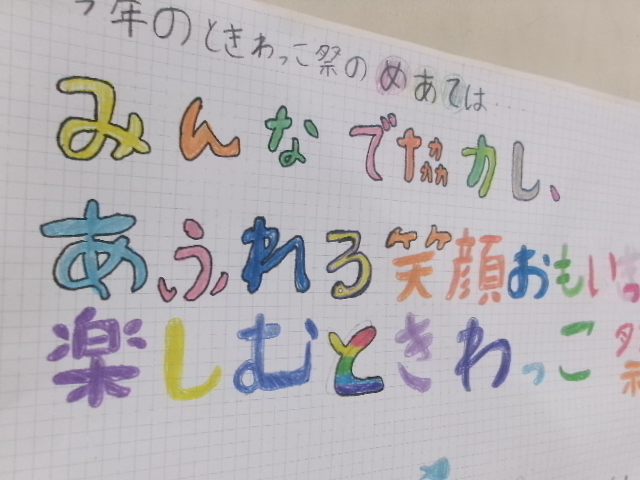 今年のときわっこ祭のめあては…
みんなで協力し、
あふれる笑顔おもいっ
楽しむときわっこ